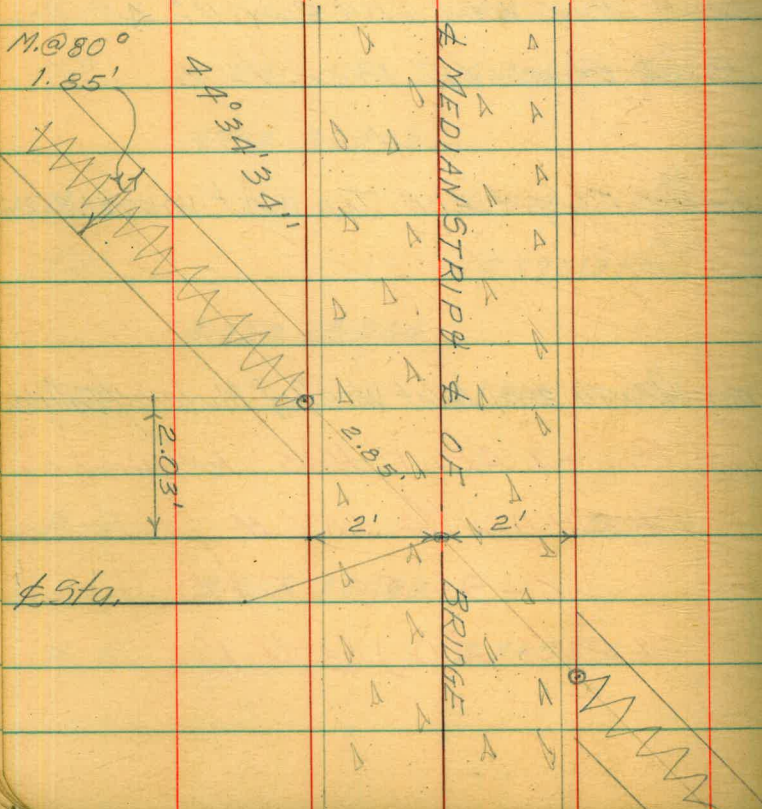 M.@80°
1.85'
44°34'34"
℄ MEDIAN STRIP & ℄ OF BRIDGE
2.85'
2.03'
2' 2'
℄ Sta.